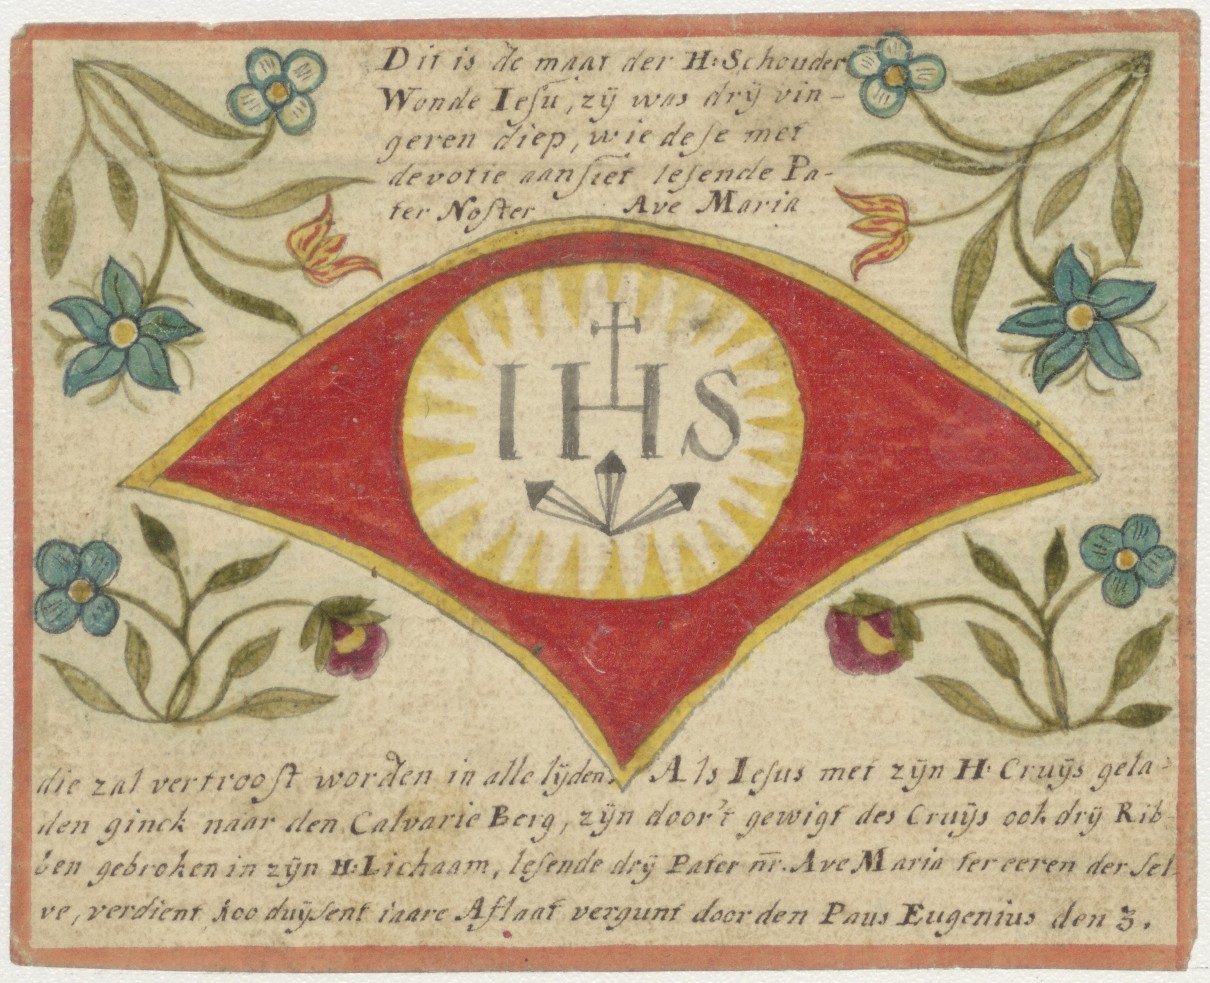 Dit is de maat der H: Schouder
Wonde Iesu, zÿ was drÿ vin-
geren diep, wie dese met
devotie aansiet lesende Pa-
ter Noster Ave Maria
IHS
die zal vertroost worden in alle lÿden. Als Iesus met zÿn H. Cruÿs gela-
den ginck naar den Calvarie Berg, zÿn door't gewigt des Cruÿs ook drÿ Rib-
ben gebroken in zÿn H: Lichaam, lesende drÿ Pater nr̄. Ave Maria ter eeren der sel-
ve, verdient 100 duÿsent iaare Aflaat vergunt door den Paus Eugenius den 3.